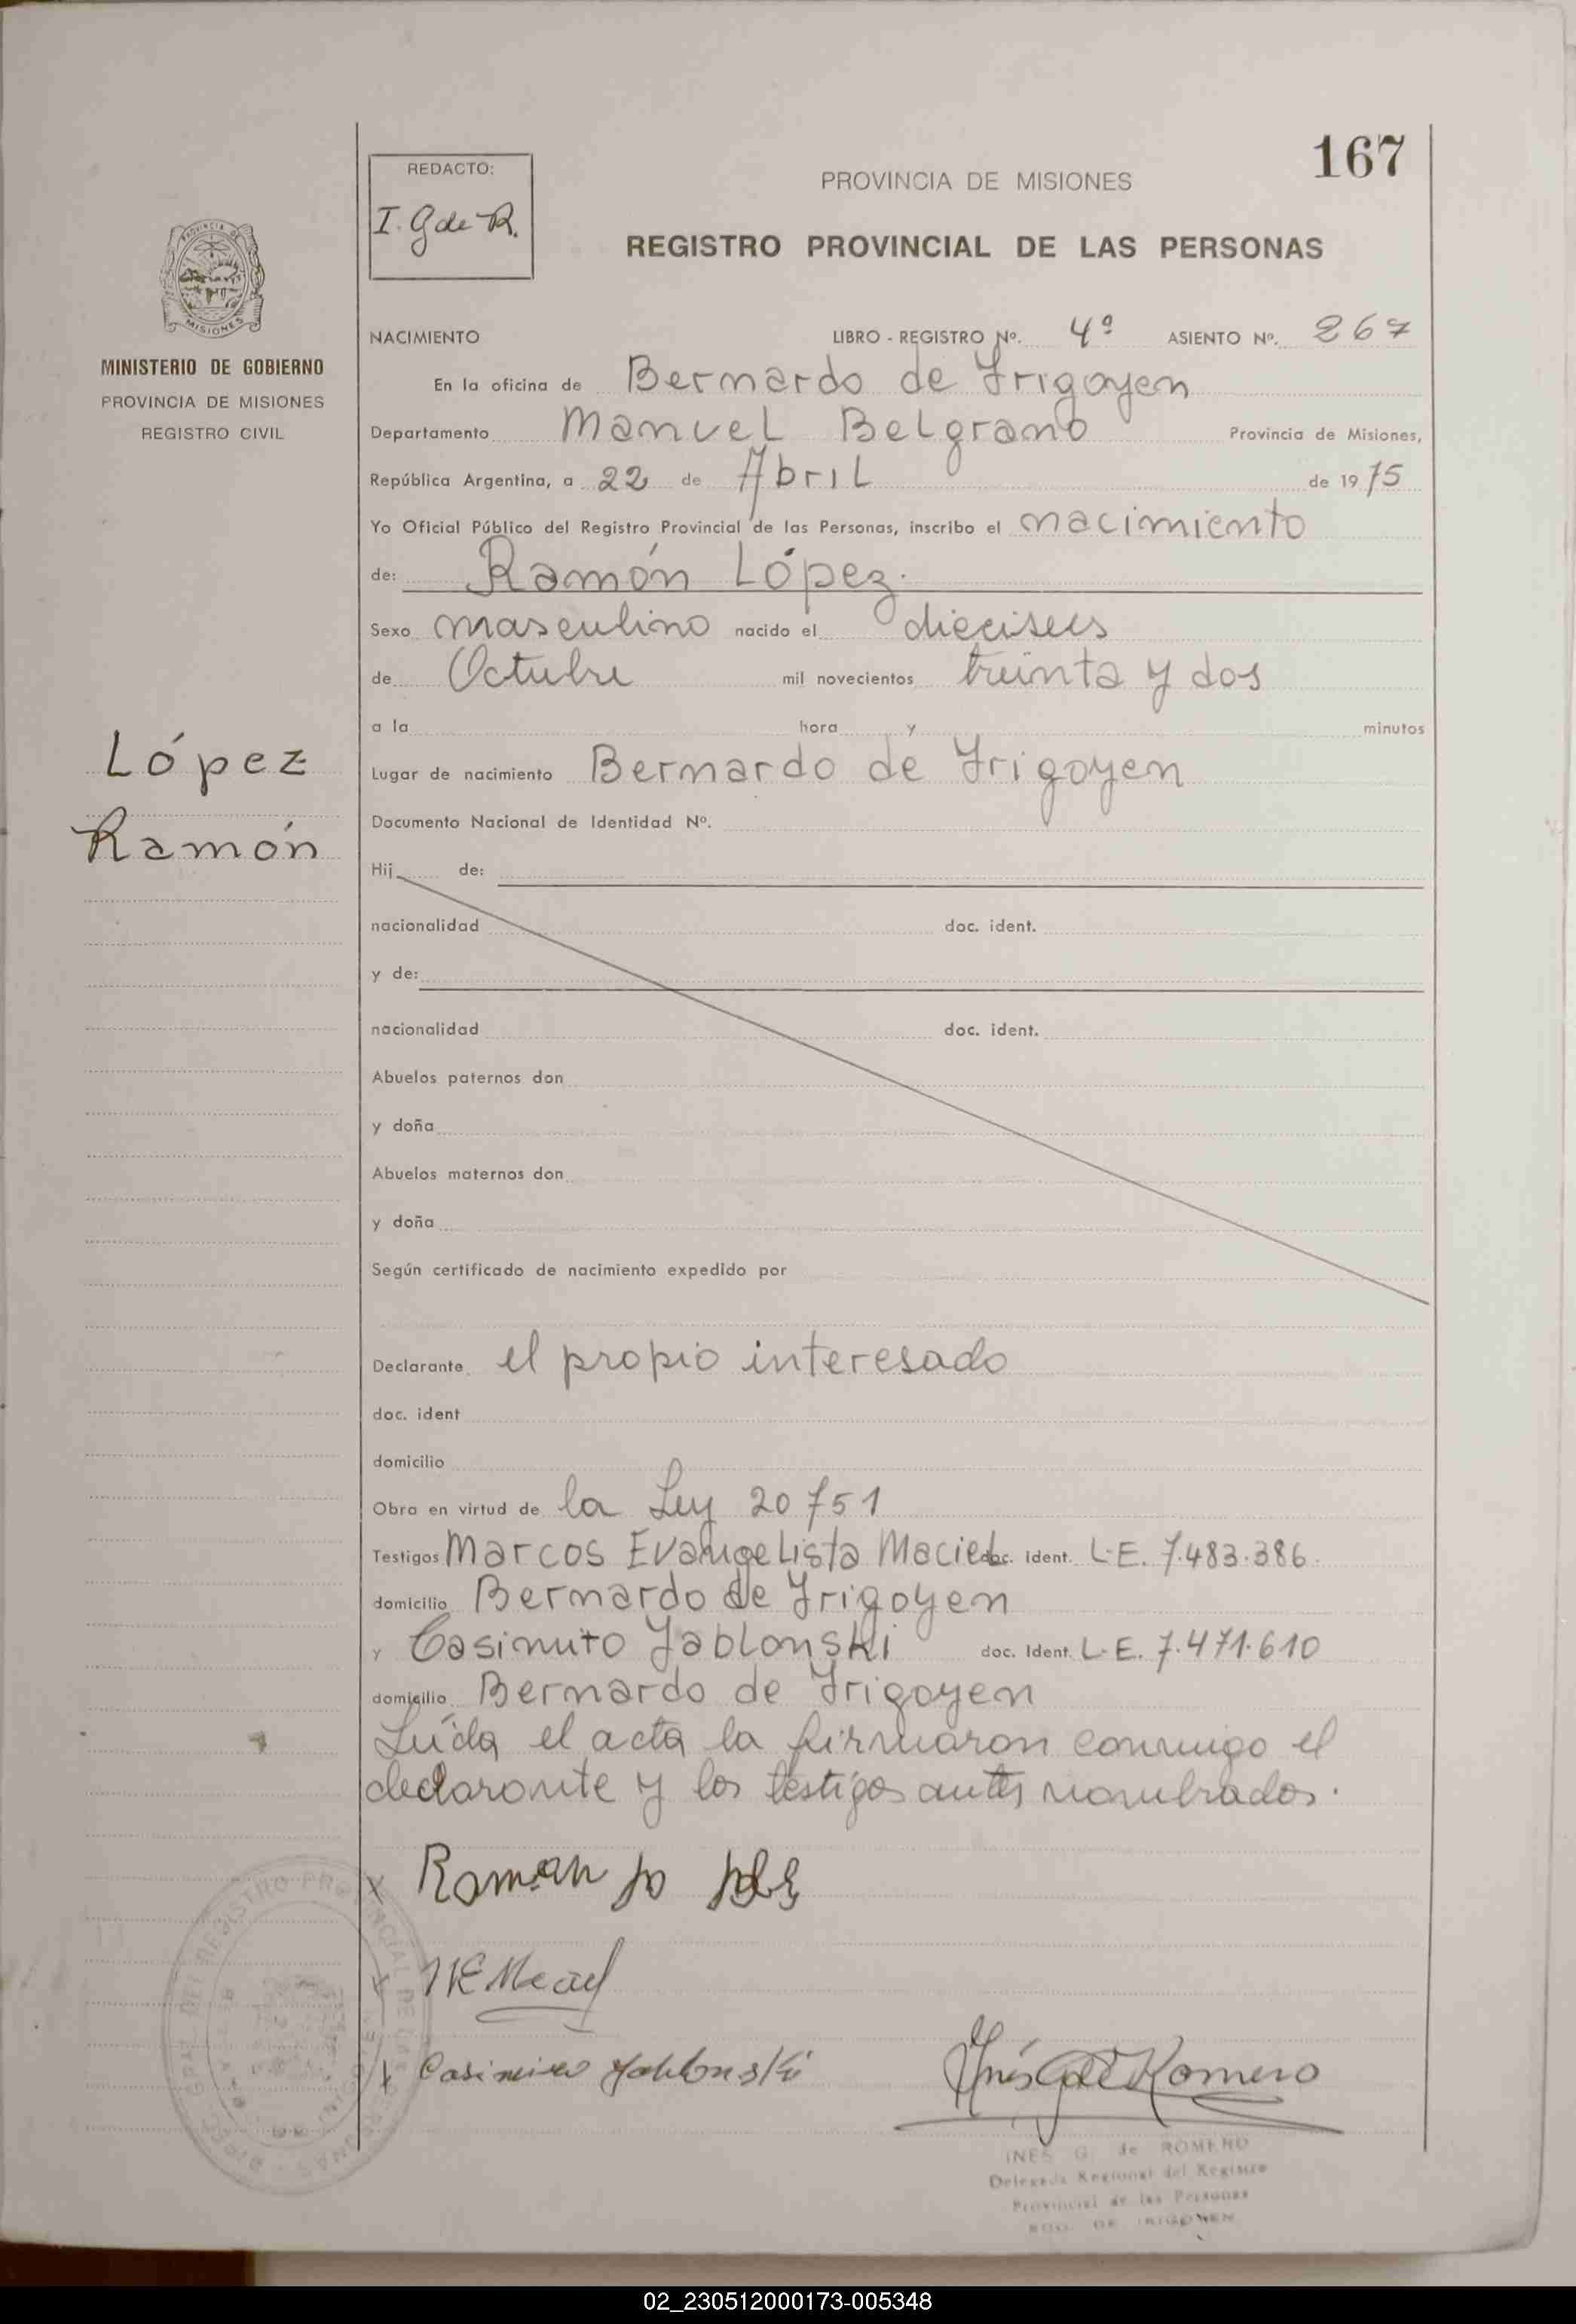 167
REDACTO:
I. G de R.
PROVINCIA DE MISIONES
REGISTRO PROVINCIAL DE LAS PERSONAS
PROVINCIA DE
MISIONES
MINISTERIO DE GOBIERNO
PROVINCIA DE MISIONES
REGISTRO CIVIL
NACIMIENTO LIBRO - REGISTRO Nº. 4º ASIENTO Nº. 267
En la oficina de Bernardo de Irigoyen
Departamento Manuel Belgrano Provincia de Misiones,
República Argentina, a 22 de Abril de 1975
Yo Oficial Público del Registro Provincial de las Personas, inscribo el nacimiento
de: Ramón López.
Sexo masculino nacido el dieciseis
de Octubre mil novecientos treinta y dos
a la hora y minutos
López
Ramón
Lugar de nacimiento Bernardo de Irigoyen
Documento Nacional de Identidad Nº.
Hij de:
nacionalidad doc. ident.
y de:
nacionalidad doc. ident.
Abuelos paternos don
y doña
Abuelos maternos don
y doña
Según certificado de nacimiento expedido por
Declarante el propio interesado
doc. ident
domicilio
Obra en virtud de la Ley 20751
Testigos Marcos Evangelista Maciel doc. ident. L.E. 7.483.386.
domicilio Bernardo de Irigoyen
y Casimiro Jablonski doc. Ident. L.E. 7.471.610
domicilio Bernardo de Irigoyen
Leída el acta la firmaron conmigo el
declarante y los testigos antes nombrados.
X Roman
X Casimiro Jablonski
Inés G de Romero
INES G. de ROMERO
Delegada Regional del Registro
Provincial de las Personas
BDO. DE IRIGOYEN
02_230512000173-005348